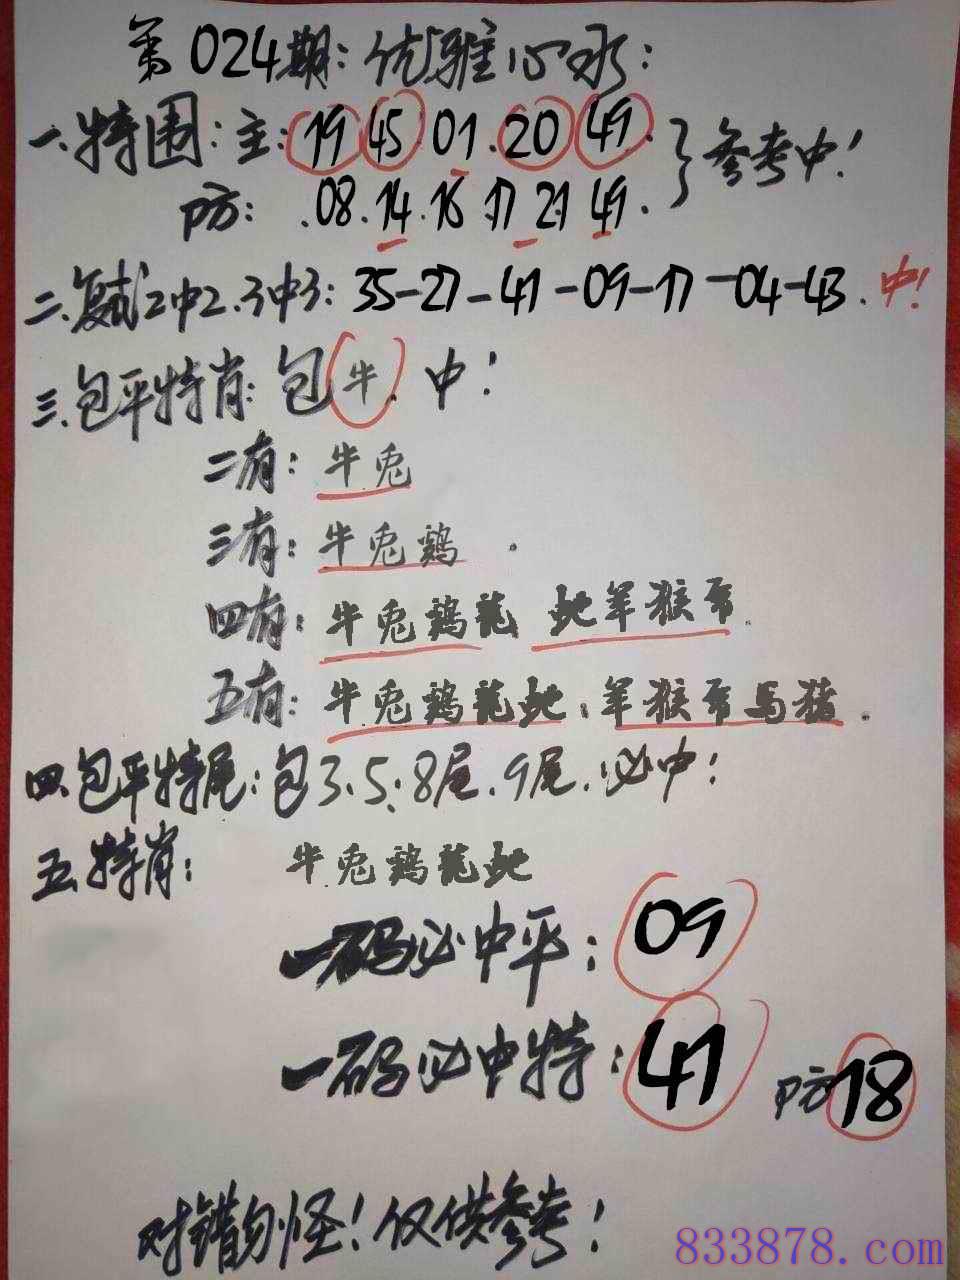 第024期：优雅心水：
一.特围：主：19 45 01.20 49.
防：.08.14.16.17 21 49.
参考中！
二.复式2中2.3中3：35-27-41-09-17-04-43.中！
三.包平特肖：包牛.中！
二有：牛兔
三有：牛兔鷄.
四有：牛兔鷄龍 蛇羊猴
五有：牛兔鷄龍蛇：羊猴 马猪.
四.包平特尾：包3.5：8尾.9尾.必中！
五.特肖：牛兔鷄龍蛇
一码必中平：09
一码必中特：41 防18
对错勿怪！仅供参考！
833878.com